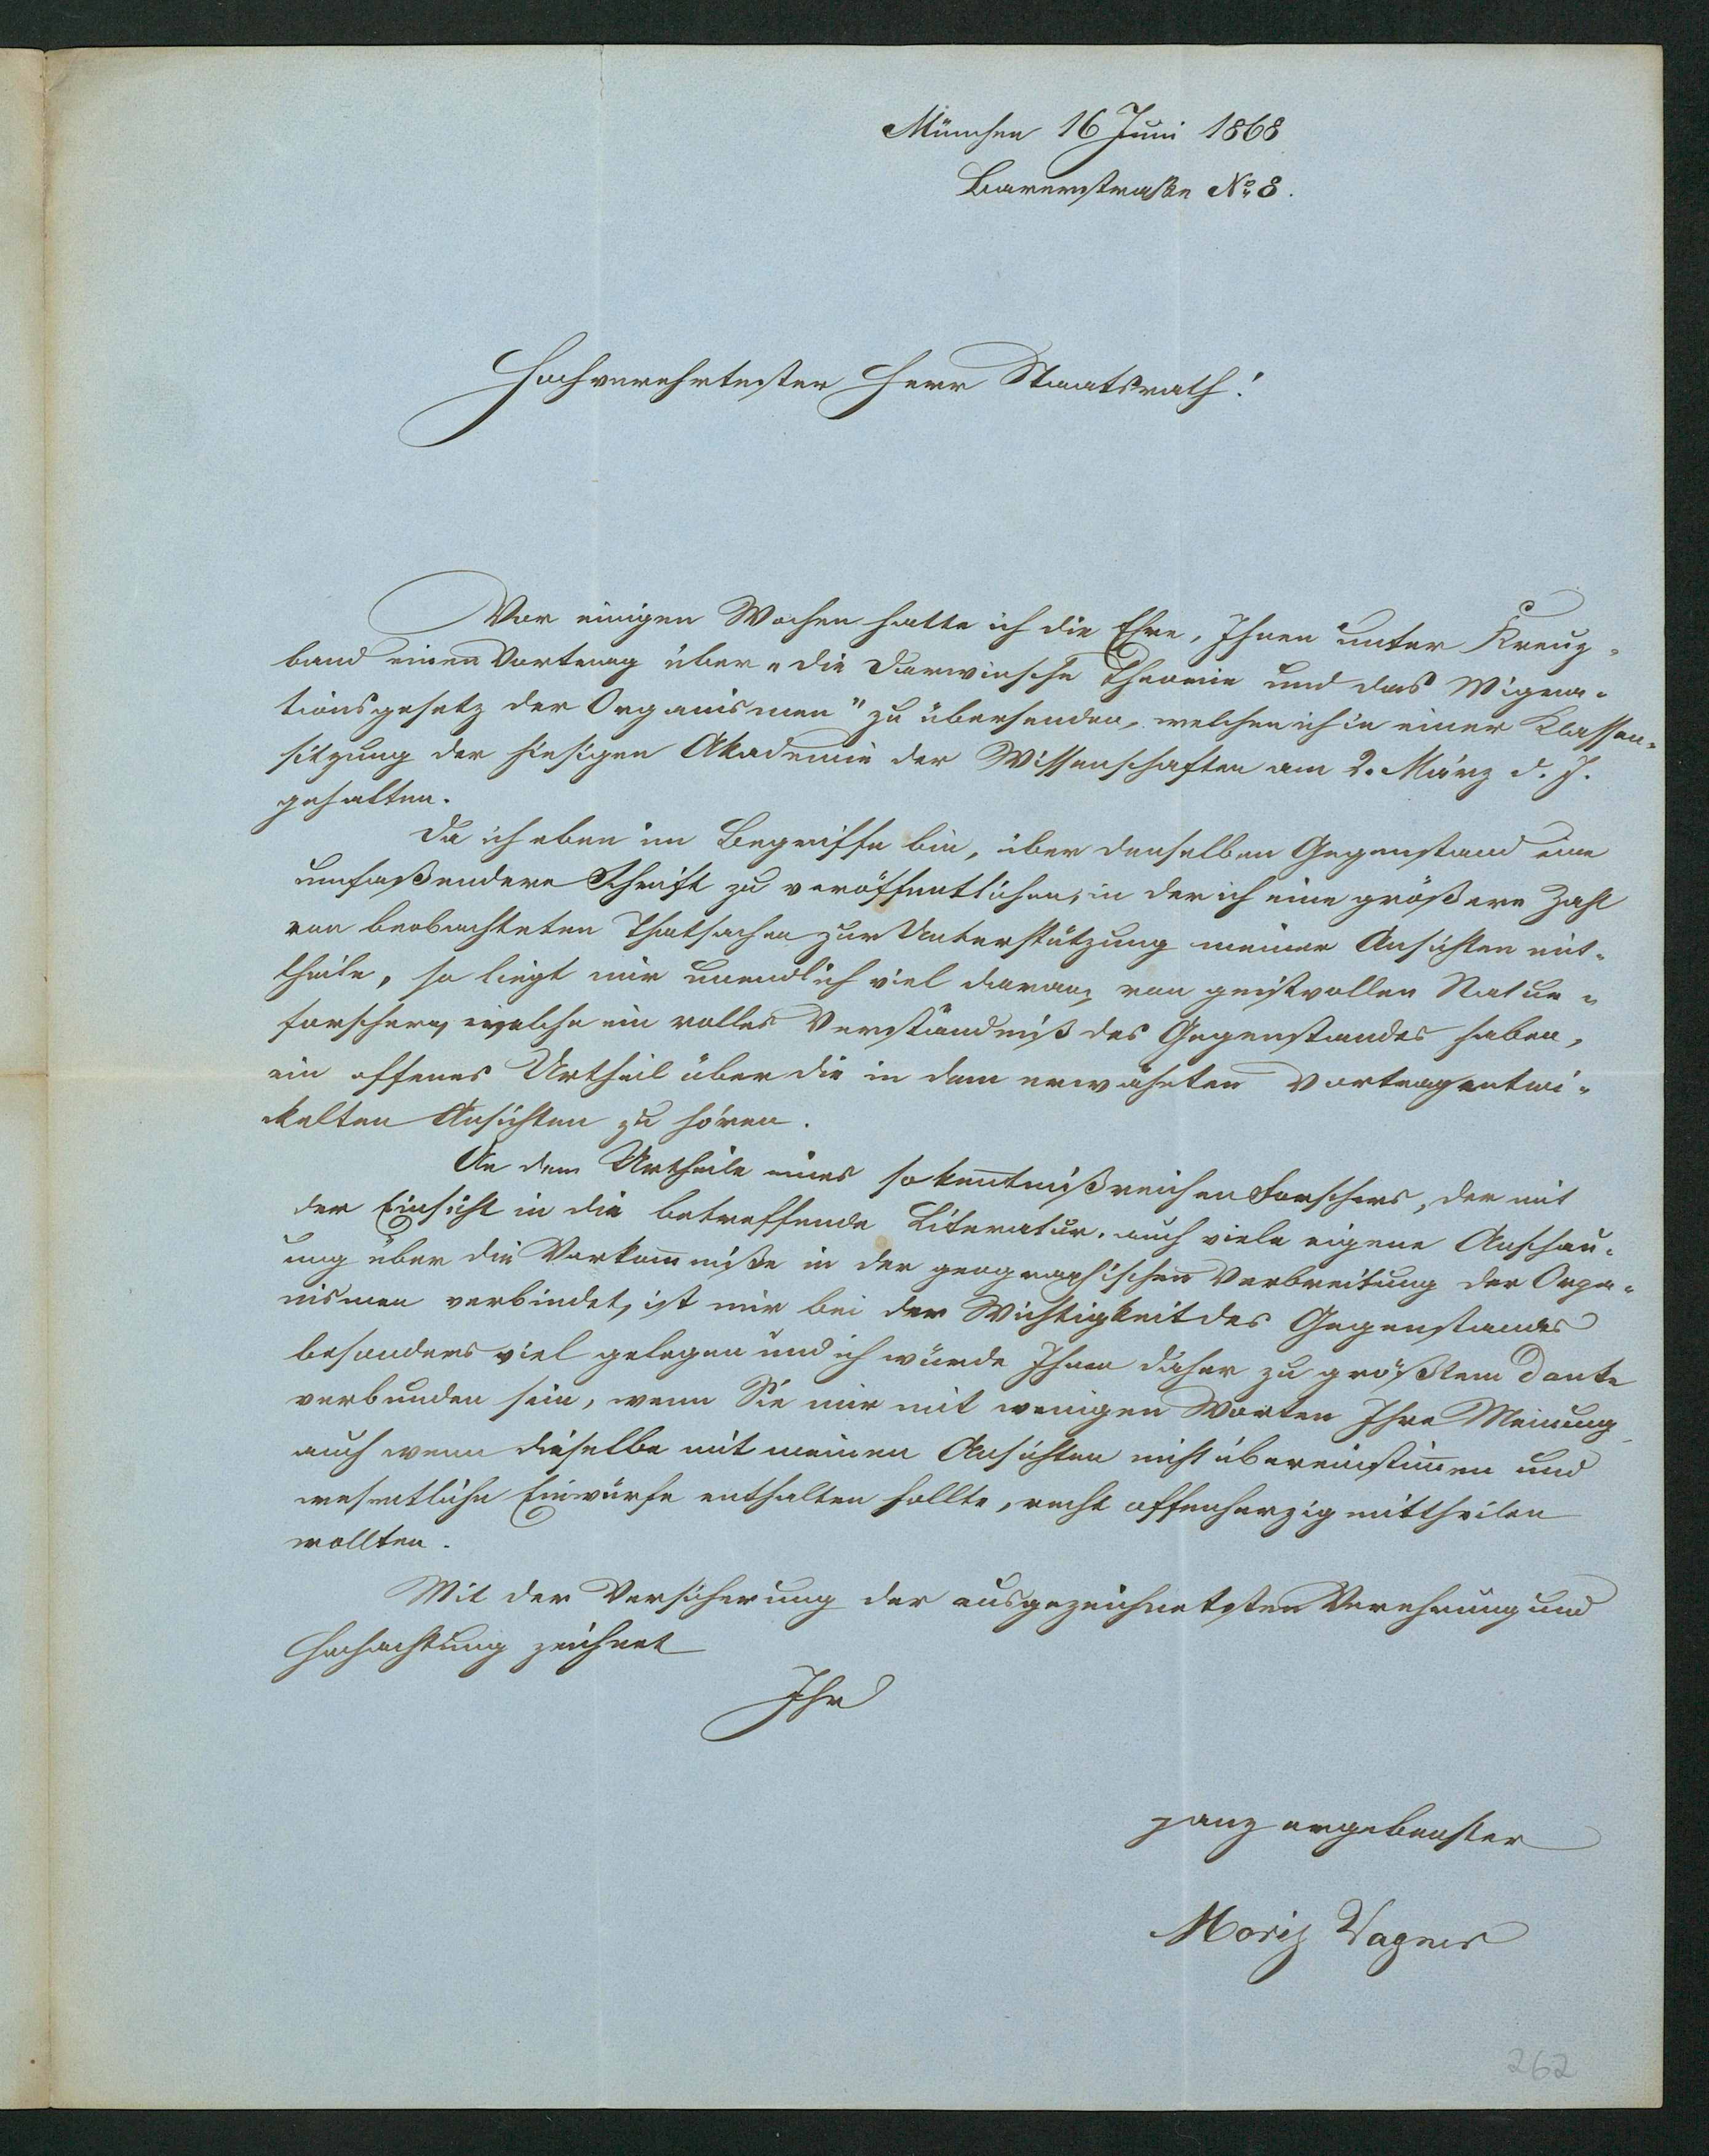 München 16 Juni 1868
Barerstraße No 8.
Hochverehrtester Herr Staatsrath!
Vor einigen Wochen hatte ich die Ehre, Ihnen unter Kreuz-
band einen Vortrag über „die Darwinsche Theorie und das Migra-
tionsgesetz der Organismen" zu übersenden, welchen ich in einer Klassen-
sitzung der hiesigen Akademie der Wissenschaften am 2. März d. J.
gehalten.
Da ich eben im Begriffe bin, über denselben Gegenstand eine
umfaßendere Schrift zu veröffentlichen, in der ich eine größere Zahl
von beobachteten Thatsachen zur Unterstützung meiner Ansichten mit-
theile, so liegt mir unendlich viel daran, von geistvollen Natur-
forschern, welche ein volles Verständniß des Gegenstandes haben,
ein offenes Urtheil über die in dem erwähnten Vortrag entwi-
ckelten Ansichten zu hören.
An dem Urtheile eines so kentnißreichen Forschers, der mit
der Einsicht in die betreffende Literatur auch viele eigene Anschau-
ung über die Vorkomniße in der geographischen Verbreitung der Orga-
nismen verbindet, ist mir bei der Wichtigkeit des Gegenstandes
besonders viel gelegen und ich würde Ihnen daher zu größtem Danke
verbunden sein, wenn Sie mir mit wenigen Worten Ihre Meinung
auch wenn dieselbe mit meinen Ansichten nicht übereinstimen und
wesentliche Einwürfe enthalten sollte, recht offenherzig mittheilen
wollten.
Mit der Versicherung der ausgezeichnetsten Verehrung und
Hochachtung zeichnet
Ihr
ganz ergebenster
Moriz Wagner
262